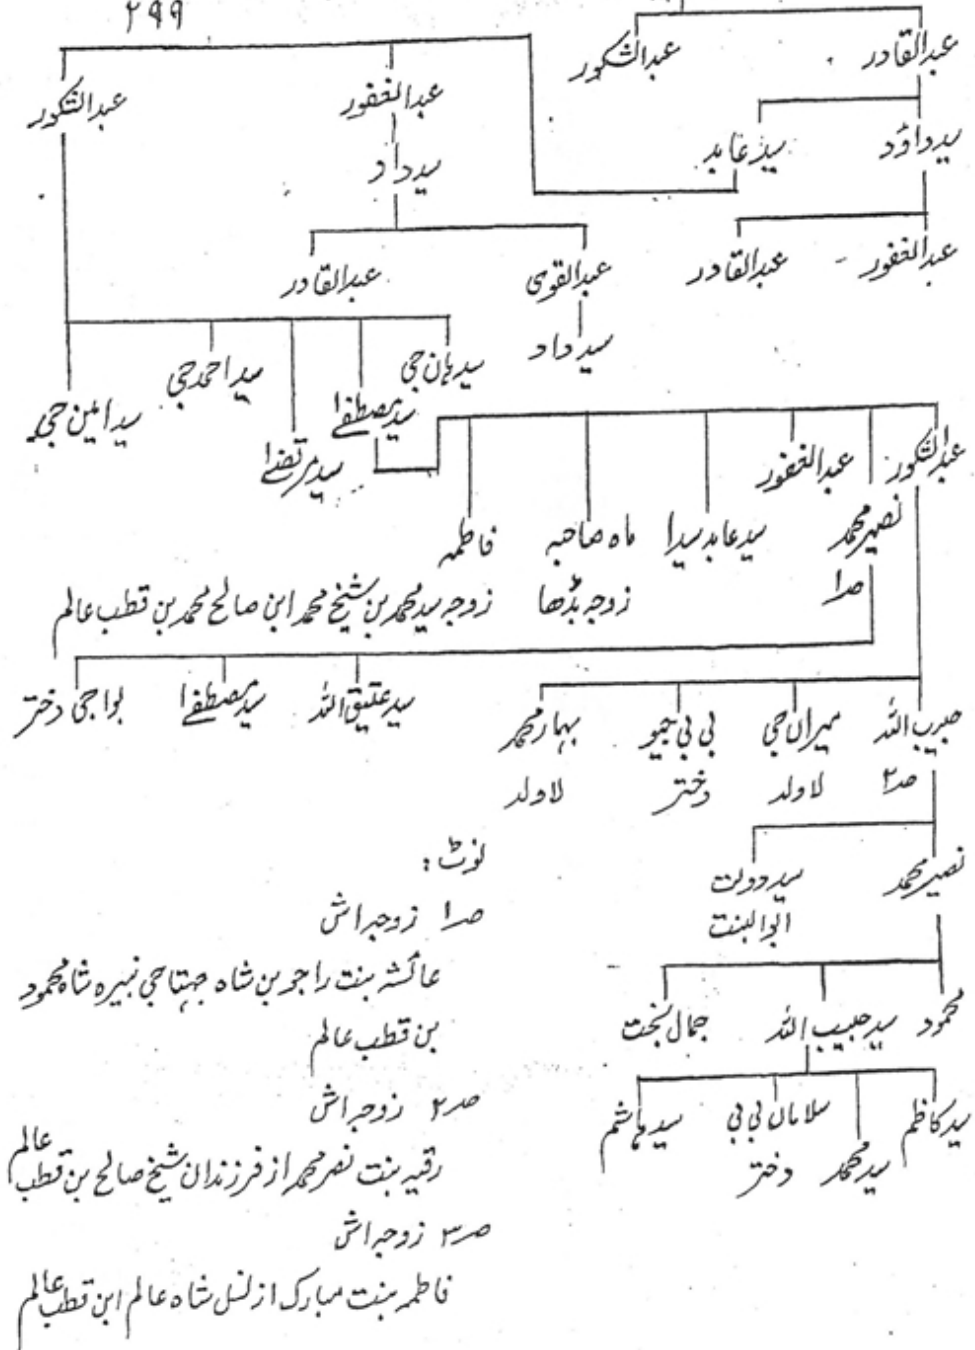 ۲۹۹
عبدالقادر
عبدالشکور
عبدالغفور
عبدالشکور
سید داؤد
سید عابد
سید داد
عبدالغفور
عبدالقادر
عبدالقوی
عبدالقادر
سید داد
سید ہان جی
سید مصطفےٰ
سید مرتضےٰ
سید احمد جی
سید امین جی
عبدالشکور
نصیر محمد
صـ۱
عبدالغفور
سید عابد سیدا
ماہ صاحبہ
زوجہ بڈھا
فاطمہ
زوجہ سید محمد بن شیخ محمد ابن صالح محمد بن قطب عالم
سید عتیق اللہ
سید مصطفےٰ
بواجی دختر
حبیب اللہ
صـ۲
میران جی
لاولد
بی بی جیو
دختر
بہار محمد
لاولد
نصیر محمد
سید دولت
ابوالبنت
محمود
سید حبیب اللہ
جمال بخت
سید کاظم
سید محمد
سلامان بی بی
دختر
سید ہاشم
نوٹ:
صـ۱ زوجہ اش
عائشہ بنت راجو بن شاہ جہتاجی نبیرہ شاہ محمود
بن قطب عالم
صـ۲ زوجہ اش
رقیہ بنت نصر محمد از فرزندان شیخ صالح بن قطب عالم
صـ۳ زوجہ اش
فاطمہ بنت مبارک از نسل شاہ عالم ابن قطب عالم